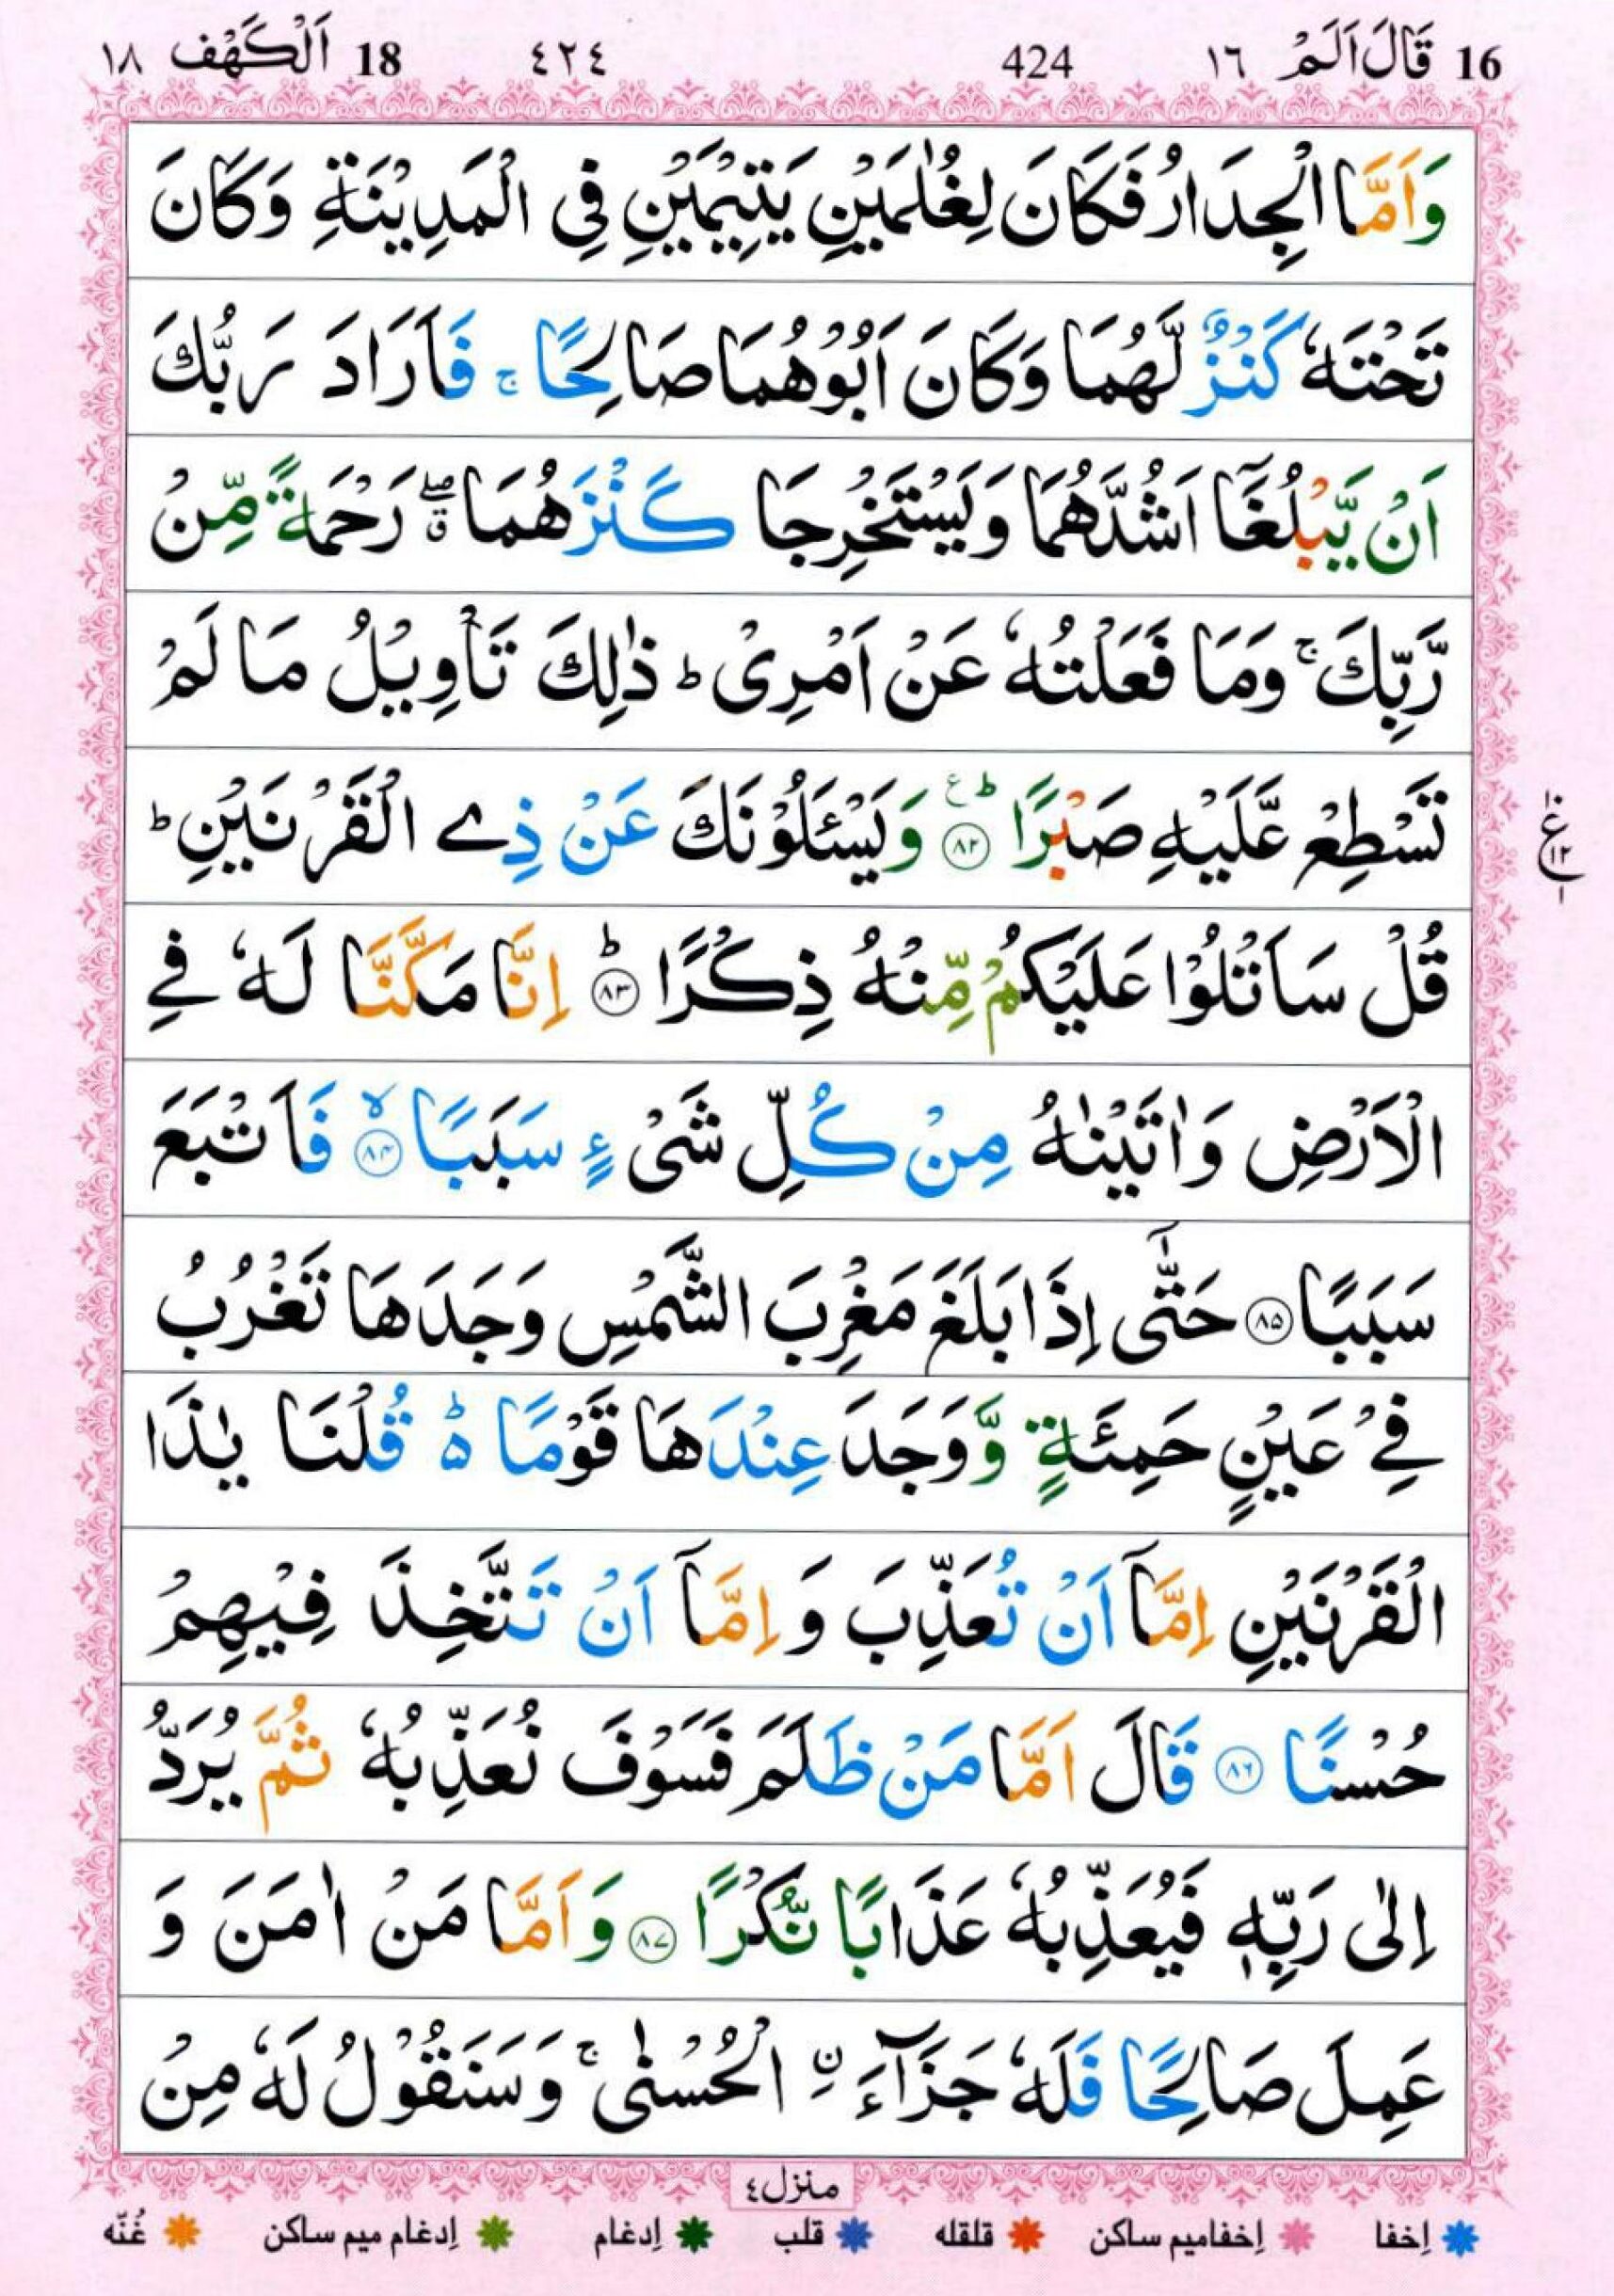 16 قَالَ اَلَمْ ١٦ 424 ٤٢٤ 18 اَلْكَهْف ١٨
وَاَمَّا الْجِدَارُ فَكَانَ لِغُلٰمَيْنِ يَتِيْمَيْنِ فِى الْمَدِيْنَةِ وَكَانَ
تَحْتَهٗ كَنْزٌ لَّهُمَا وَكَانَ اَبُوْهُمَا صَالِحًا ۚ فَاَرَادَ رَبُّكَ
اَنْ يَّبْلُغَآ اَشُدَّهُمَا وَيَسْتَخْرِجَا كَنْزَهُمَا ۖۗ رَحْمَةً مِّنْ
رَّبِّكَ ۚ وَمَا فَعَلْتُهٗ عَنْ اَمْرِىْ ؕ ذٰلِكَ تَاْوِيْلُ مَا لَمْ
تَسْطِعْ عَّلَيْهِ صَبْرًا ؕع ﴿٨٢﴾ وَيَسْـَٔلُوْنَكَ عَنْ ذِے الْقَرْنَيْنِ ؕ
ع ١٠ ١٢ ١
قُلْ سَاَتْلُوْا عَلَيْكُمْ مِّنْهُ ذِكْرًا ؕ ﴿٨٣﴾ اِنَّا مَكَّنَّا لَهٗ فِے
الْاَرْضِ وَاٰتَيْنٰهُ مِنْ كُلِّ شَىْءٍ سَبَبًا ۙ ﴿٨٤﴾ فَاَتْبَعَ
سَبَبًا ﴿٨٥﴾ حَتّٰٓى اِذَا بَلَغَ مَغْرِبَ الشَّمْسِ وَجَدَهَا تَغْرُبُ
فِےْ عَيْنٍ حَمِئَةٍ وَّوَجَدَ عِنْدَهَا قَوْمًا ۬ؕ قُلْنَا يٰذَا
الْقَرْنَيْنِ اِمَّآ اَنْ تُعَذِّبَ وَاِمَّآ اَنْ تَتَّخِذَ فِيْهِمْ
حُسْنًا ﴿٨٦﴾ قَالَ اَمَّا مَنْ ظَلَمَ فَسَوْفَ نُعَذِّبُهٗ ثُمَّ يُرَدُّ
اِلٰى رَبِّهٖ فَيُعَذِّبُهٗ عَذَابًا نُّكْرًا ﴿٨٧﴾ وَاَمَّا مَنْ اٰمَنَ وَ
عَمِلَ صَالِحًا فَلَهٗ جَزَآءَ ۨ الْحُسْنٰى ۚ وَسَنَقُوْلُ لَهٗ مِنْ
منزل٤
إخفا إخفاميم ساكن قلقله قلب إدغام إدغام ميم ساكن غُنّه